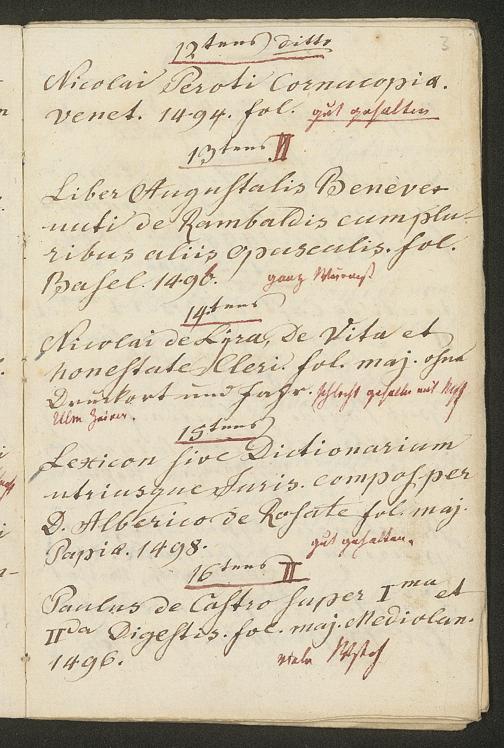 3
12tens ditto
Nicolai Peroti Cornucopiæ.
Venet. 1494. fol. gut gehalten
13tens II
Liber Augustalis Benevenuti
nuti de Rambaldis cum plu-
ribus aliis opusculis. fol.
Basel. 1496. ganz Wurmst
14tens
Nicolai de Lÿra, De Vita et
honestate Cleri. fol. maj. ohne
Druckort und Jahr. schlecht gehalten mit
Ulm Zainer.
15tens
Lexicon sive Dictionarium
utriusque Juris. compos. per
D. Alberico de Rosate fol. maj.
Papiæ. 1498. gut gehalten.
16tens II
Paulus de Castro super Ima et
IIda Digestis. fol. maj. Mediolan.
1496. viele